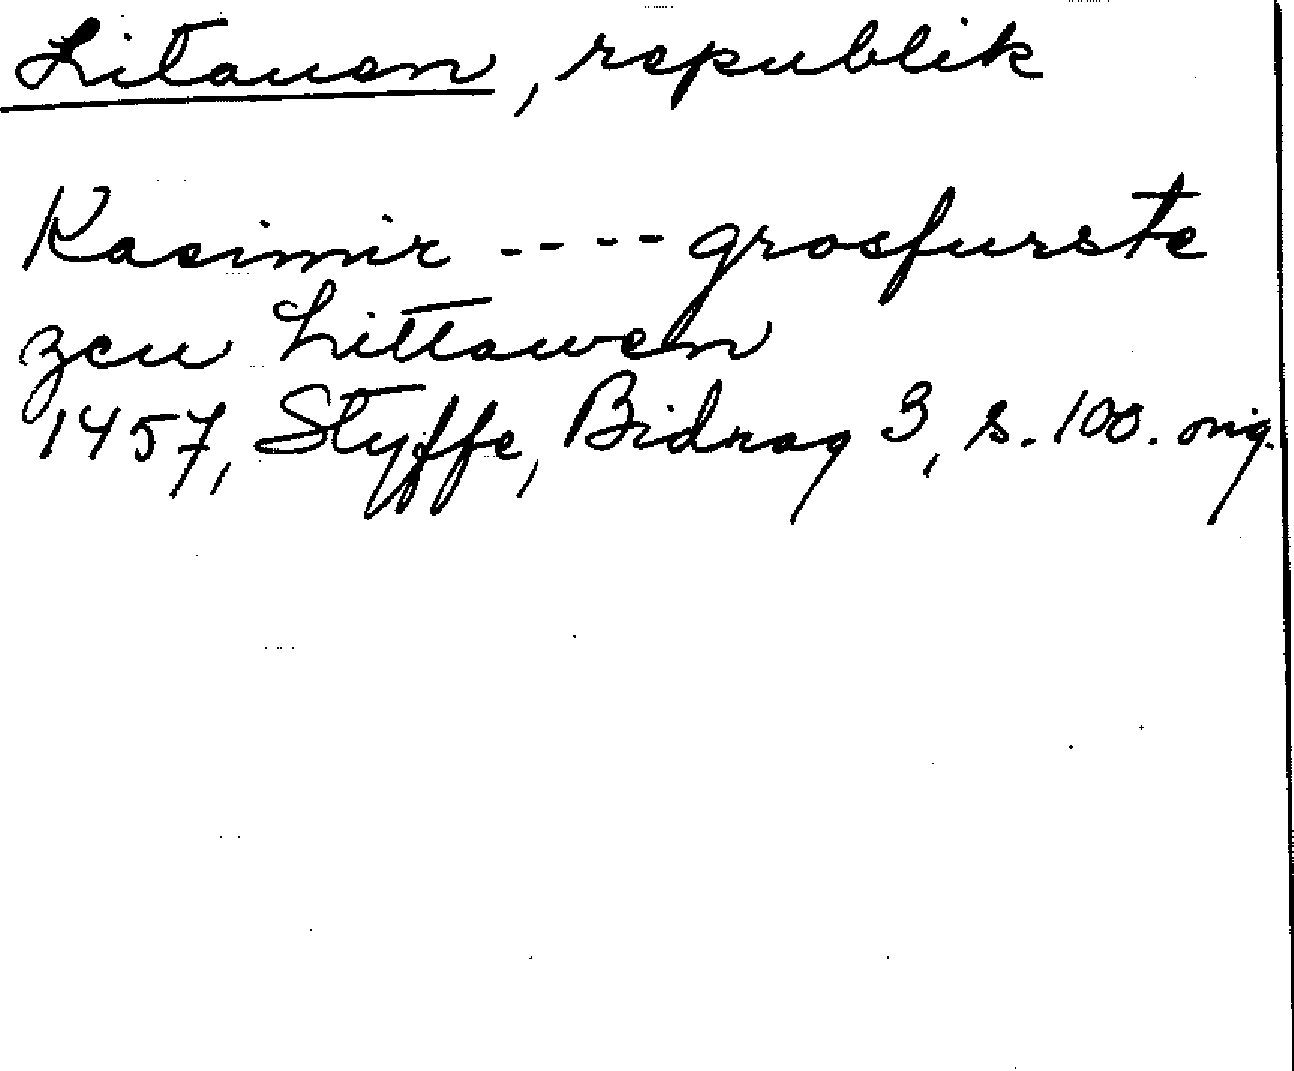 Litauen, republik
Kasimir ---- grosfurste
zcu Littawen
1457, Styffe, Bidrag 3, s. 100. orig.